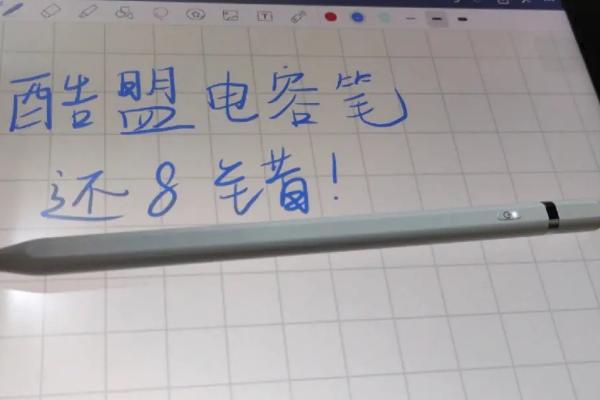 酷盟电容笔
还8错!